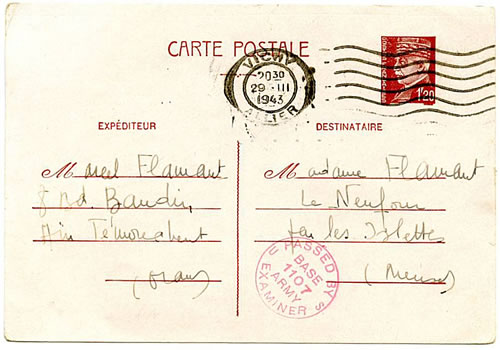 CARTE POSTALE
VICHY
20 30
29 · III
1943
ALLIER
1f20
EXPÉDITEUR
Marcel Flamant
8 Bd. Baudin,
Ain Témouchent
(Oran)
DESTINATAIRE
Madame Flamant
Le Neufour
par les Islettes
(Meuse)
PASSED BY
BASE
1107
ARMY
EXAMINER
U S